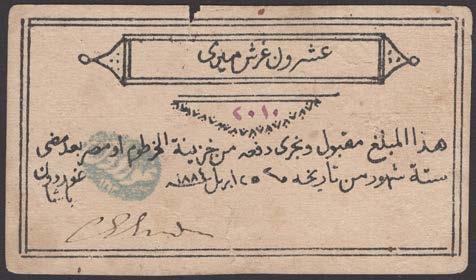 عشرون غرش ميرى
٢٠١٠
هذا المبلغ مقبول ويجرى دفعه من خزينة الخرطوم او مصر بعد مضى
ستة شهور من تاريخه ٢٥ ابريل ١٨٨٤
غوردون
باشا